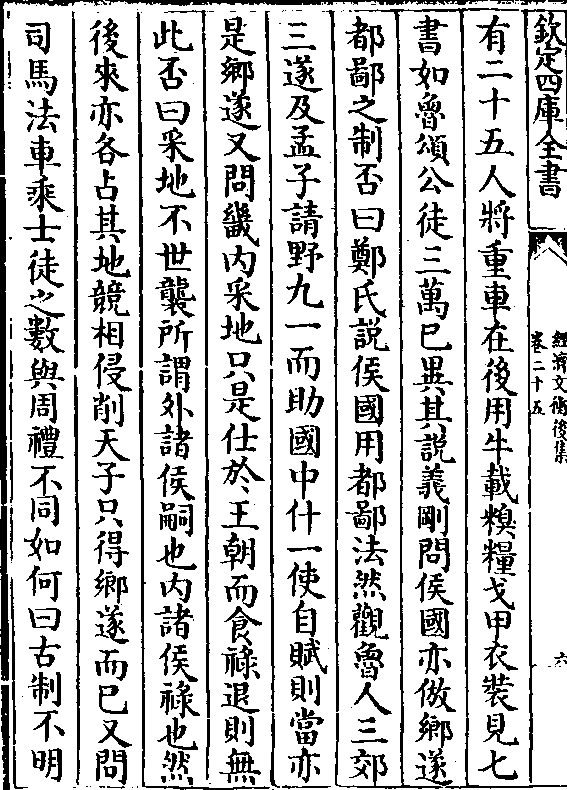 欽定四庫全書
經濟文衡後集
卷二十五
六
有二十五人將重車在後用牛載糗糧戈甲衣裝見七
書如魯頌公徒三萬已異其說義剛問侯國亦倣鄉遂
都鄙之制否曰鄭氏說侯國用都鄙法然觀魯人三郊
三遂及孟子請野九一而助國中什一使自賦則當亦
是鄉遂又問畿内采地只是仕於王朝而食祿退則無
此否曰采地不世襲所謂外諸侯嗣也内諸侯祿也然
後來亦各占其地競相侵削天子只得鄉遂而已又問
司馬法車乘士徒之數與周禮不同如何曰古制不明